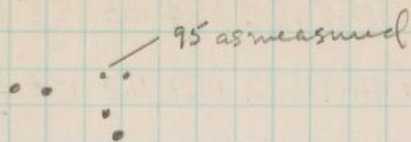 95 as measured